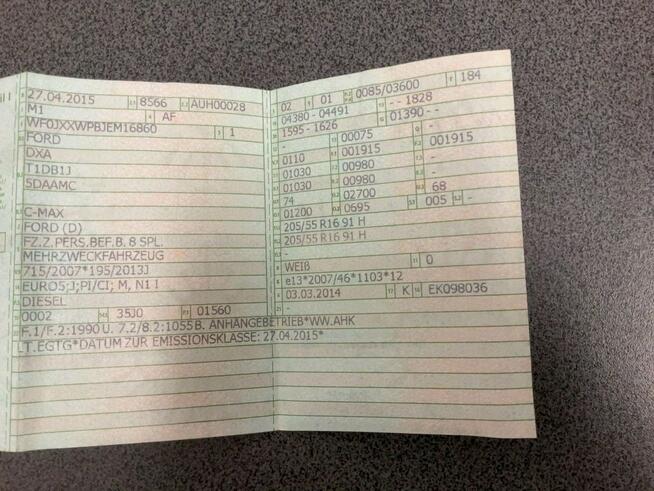 27.04.2015 8566 AUH00028
M1 AF
WF0JXXWPBJEM16860 1
FORD
DXA
T1DB1J
5DAAMC
C-MAX
FORD (D)
FZ.Z.PERS.BEF.B. 8 SPL.
MEHRZWECKFAHRZEUG
715/2007*195/2013J
EURO5;J;PI/CI; M, N1 I
DIESEL
0002 35J0 01560
F.1/F.2:1990 U. 7.2/8.2:1055 B. ANHÄNGEBETRIEB*WW.AHK
LT.EGTG*DATUM ZUR EMISSIONSKLASSE: 27.04.2015*
02 01 0085/03600 184
04380 - 04491 - - 1828
1595 - 1626 01390 - -
- 00075 -
0110 001915 001915
01030 00980 -
01030 00980 -
74 02700 68
01200 0695 005 -
205/55 R16 91 H
205/55 R16 91 H
-
WEIß 0
e13*2007/46*1103*12
03.03.2014 K EK098036
-